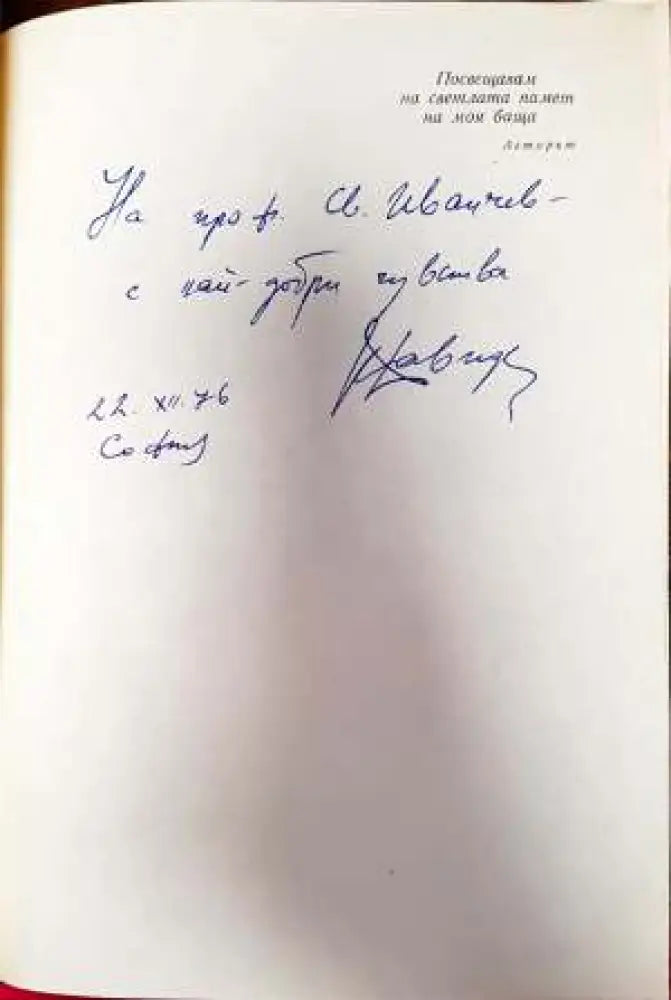 Посвещавам
на светлата памет
на моя баща
Авторът
На проф. Св. Иванчев -
с най-добри чувства
22. XII. 76
София